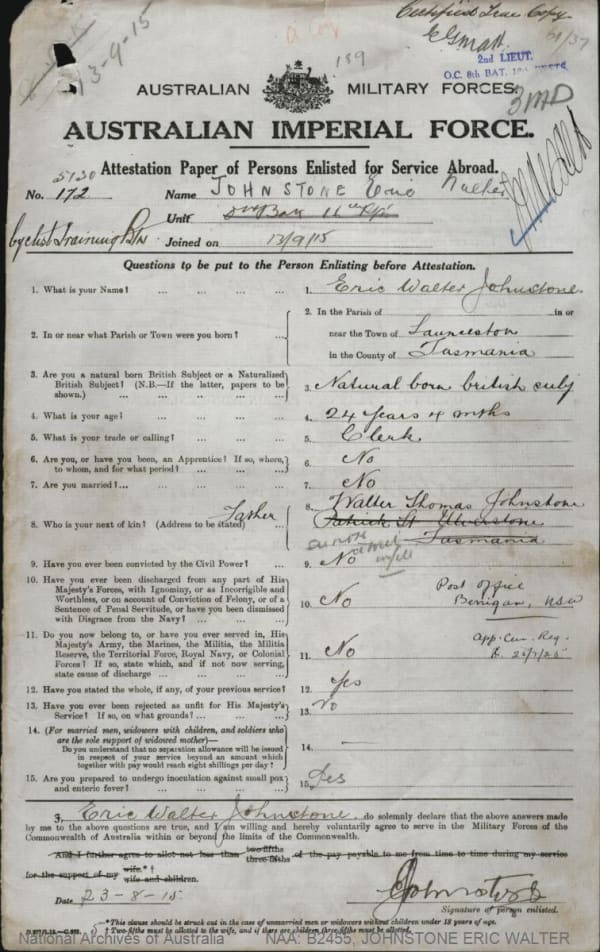 Certified True Copy
13-9-15
a Cory
189
61/37
2nd LIEUT.
O.C. 8th BAT.
AUSTRALIAN MILITARY FORCES.
3MD
AUSTRALIAN IMPERIAL FORCE.
Attestation Paper of Persons Enlisted for Service Abroad.
5130
No. 172 Name JOHNSTONE Eric Walter
Unit
Cyclist Training Btn
Joined on 13/9/15
Questions to be put to the Person Enlisting before Attestation.
1. What is your Name? ... ... ... 1. Eric Walter Johnstone
2. In or near what Parish or Town were you born? ... 2. In the Parish of in or
near the Town of Launceston
in the County of Tasmania
3. Are you a natural born British Subject or a Naturalized
British Subject? (N.B.—If the latter, papers to be
shown.) ... ... ... ... ... 3. Natural born british subj
4. What is your age? ... ... ... 4. 24 years 4 mths
5. What is your trade or calling? ... ... 5. Clerk
6. Are you, or have you been, an Apprentice? If so, where,
to whom, and for what period? ... ... 6. No
7. Are you married?... ... ... ... 7. No
8. Who is your next of kin? (Address to be stated) Father 8. Walter Thomas Johnstone
Patrick St Ulverstone
Tasmania
9. Have you ever been convicted by the Civil Power? ... 9. No
10. Have you ever been discharged from any part of His
Majesty's Forces, with Ignominy, or as Incorrigible and
Worthless, or on account of Conviction of Felony, or of a
Sentence of Penal Servitude, or have you been dismissed
with Disgrace from the Navy? ... ... 10. No
Post Office
Berrigan, NSW
11. Do you now belong to, or have you ever served in, His
Majesty's Army, the Marines, the Militia, the Militia
Reserve, the Territorial Force, Royal Navy, or Colonial
Forces? If so, state which, and if not now serving,
state cause of discharge ... ... ... 11. No
12. Have you stated the whole, if any, of your previous service? 12. Yes
13. Have you ever been rejected as unfit for His Majesty's
Service? If so, on what grounds? ... ... 13. No
14. (For married men, widowers with children, and soldiers who
are the sole support of widowed mother)—
Do you understand that no separation allowance will be issued
in respect of your service beyond an amount which
together with pay would reach eight shillings per day? ... 14. —
15. Are you prepared to undergo inoculation against small pox
and enteric fever? ... ... ... 15. Yes
I, Eric Walter Johnstone do solemnly declare that the above answers made
by me to the above questions are true, and I am willing and hereby voluntarily agree to serve in the Military Forces of the
Commonwealth of Australia within or beyond the limits of the Commonwealth.
And I further agree to allot not less than two-fifths three-fifths of the pay payable to me from time to time during my service
for the support of my wife.*† wife and children.
Date 23-8-15
E Johnstone
Signature of person enlisted.
*This clause should be struck out in the case of unmarried men or widowers without children under 18 years of age.
† Two-fifths must be allotted to the wife, and if there are children three-fifths must be allotted.
National Archives of Australia NAA: B2455, JOHNSTONE ERIC WALTER